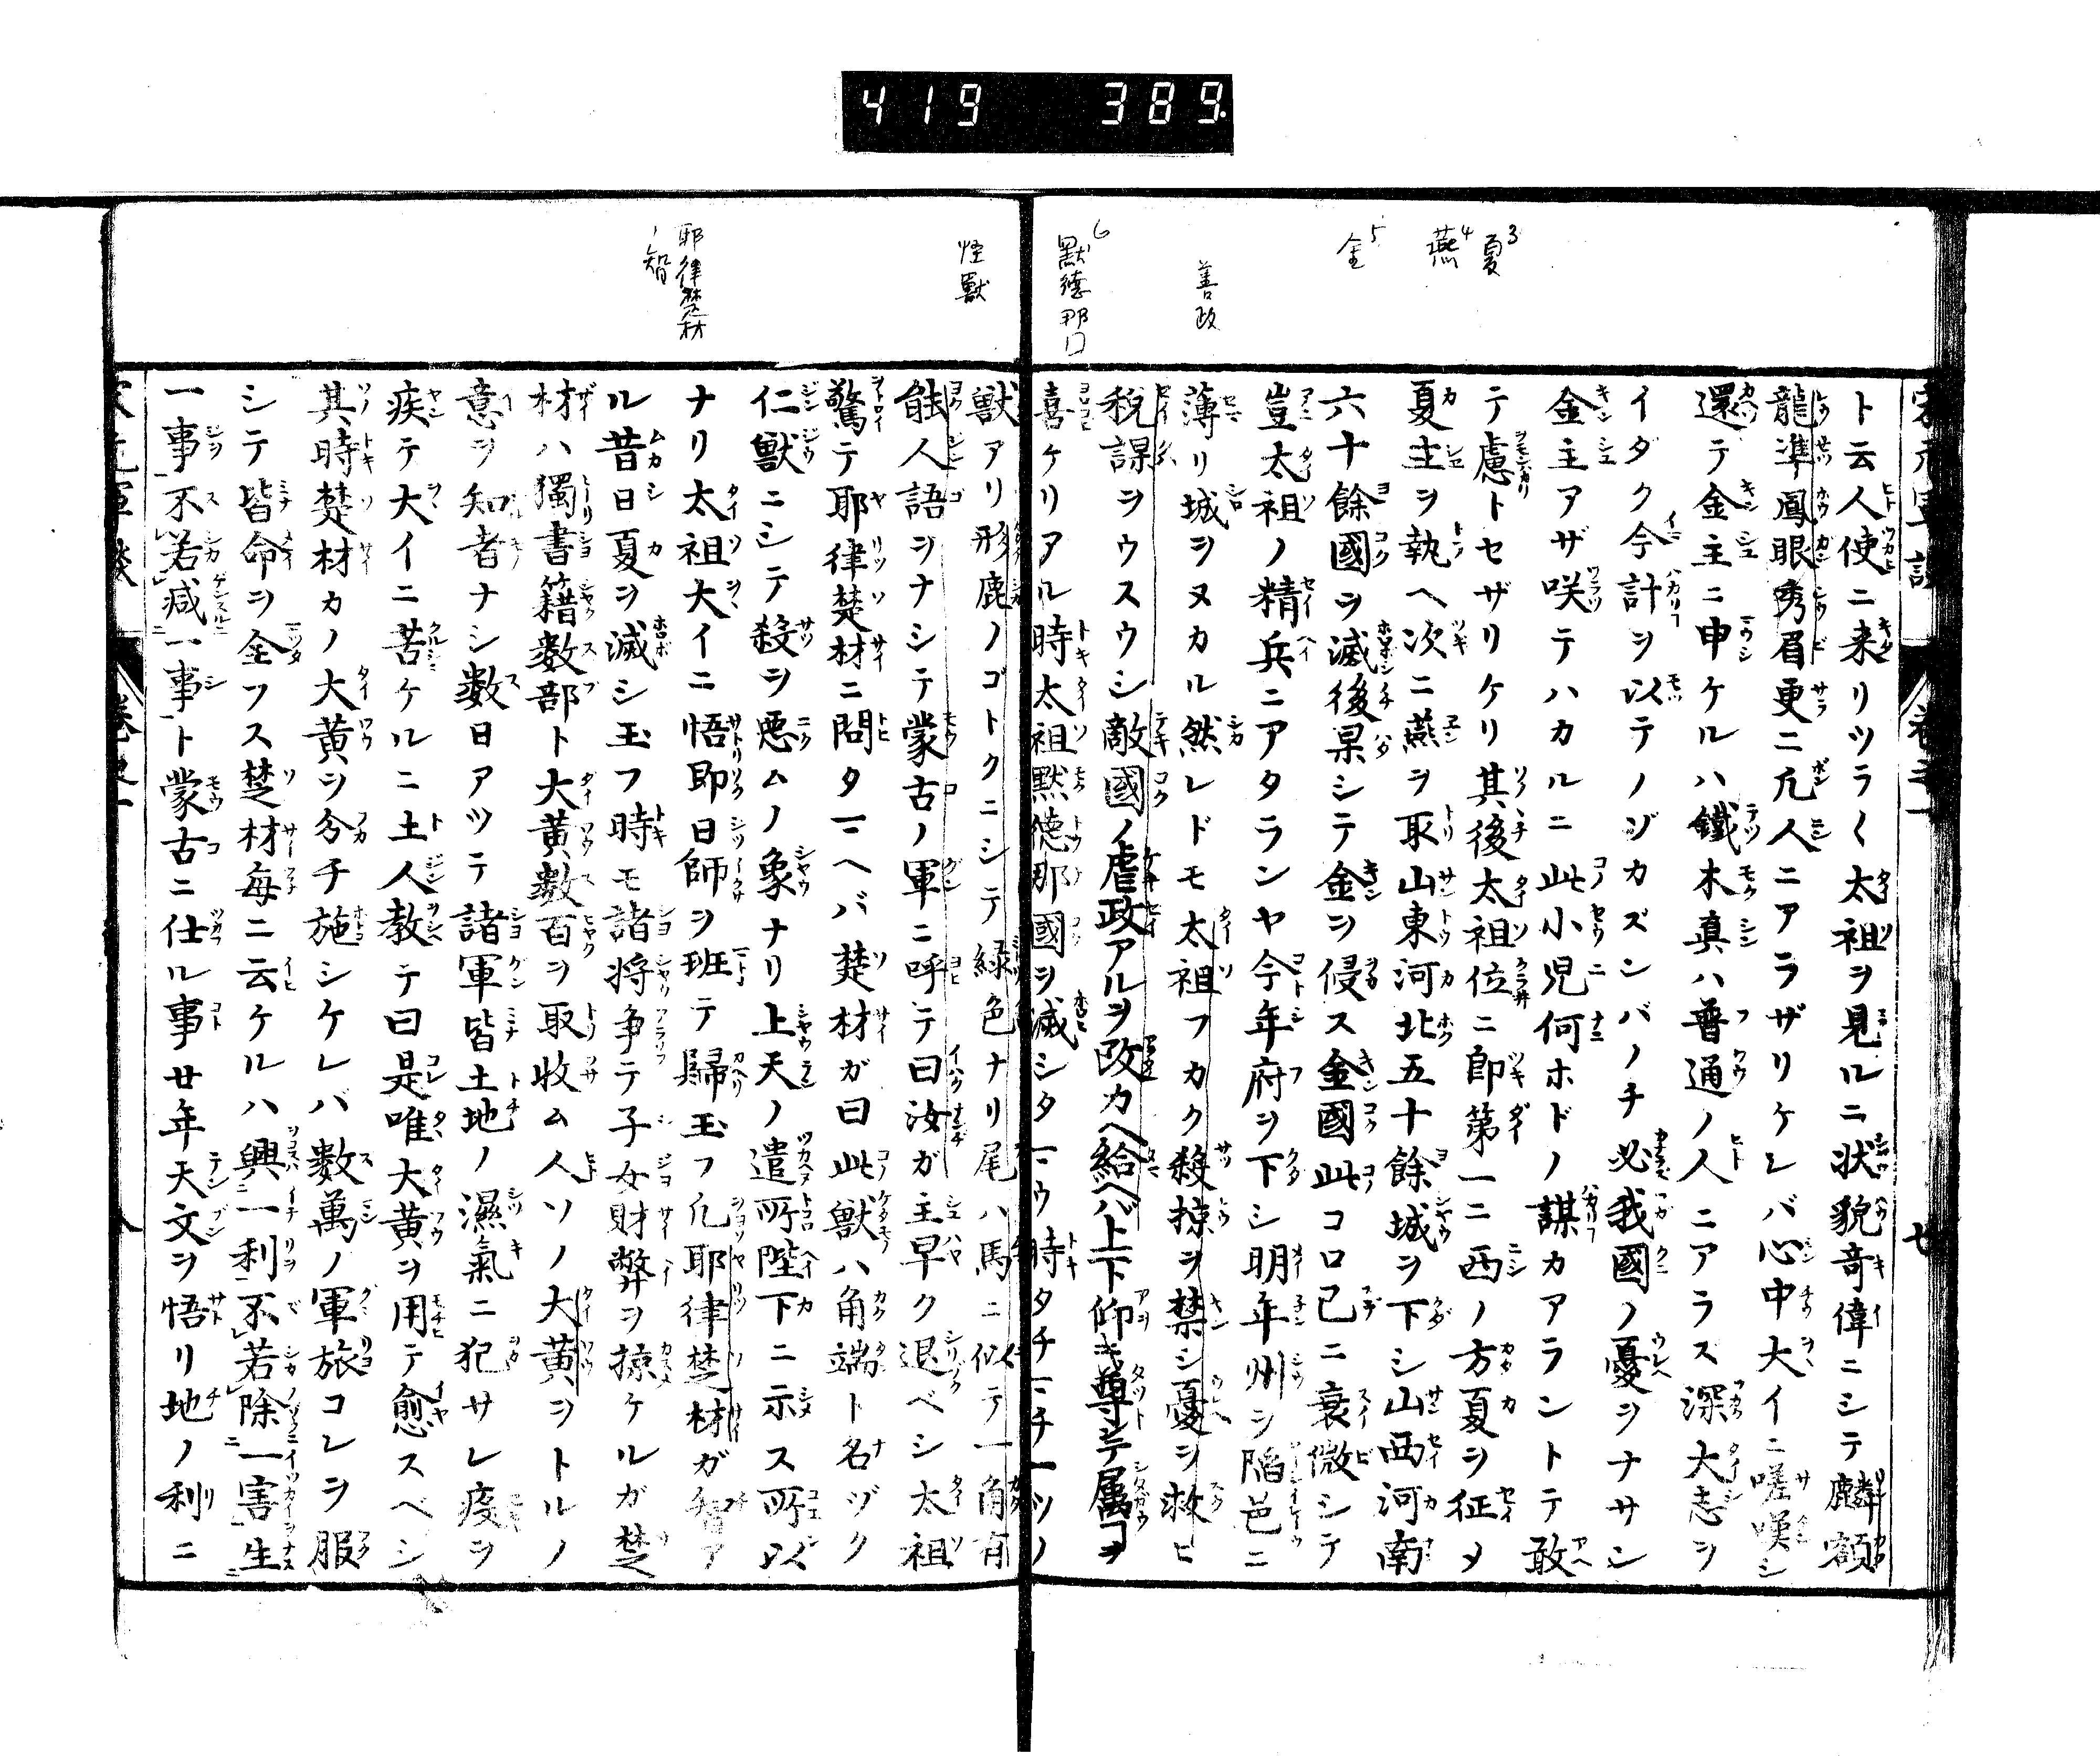 419 389.
夏3
燕4
金5
善政
6
默德那口
怪獸
耶律楚材
ノ智
ト云人使ニ来リツラ〱太祖ヲ見ルニ状貌竒偉ニシテ麟額
龍準鳳眼秀眉更ニ凢人ニアラザリケレバ心中大イニ嗟嘆シ
還テ金主ニ申ケルハ鐵木真ハ普通ノ人ニアラス深大志ヲ
イダク今計ヲ以テノゾカズンバノチ必我國ノ憂ヲナサン
金主アザ咲テハカルニ此小児何ホドノ謀カアラントテ敢
テ慮トセザリケリ其後太祖位ニ即第一ニ西ノ方夏ヲ征メ
夏主ヲ執ヘ次ニ燕ヲ取山東河北五十餘城ヲ下シ山西河南
六十餘國ヲ滅後果シテ金ヲ侵ス金國此コロ已ニ衰微シテ
豈太祖ノ精兵ニアタランヤ今年府ヲ下シ明年州シ陥邑ニ
薄リ城ヲヌカル然レドモ太祖フカク殺掠ヲ禁シ憂ヲ救ヒ
税課ヲウスウシ敵國ノ虐政アルヲ改カヘ給ヘバ上下仰キ尊シテ属ヿヲ
喜ケリアル時太祖黙德那國ヲ滅シタマウ時タチマチ一ツノ
獣アリ形鹿ノゴトクニシテ緑色ナリ尾ハ馬ニ似テ一角有
能人語ヲナシテ蒙古ノ軍ニ呼テ曰汝ガ主早ク退ベシ太祖
驚テ耶律楚材ニ問タマヘバ楚材ガ曰此獣ハ角端ト名ヅク
仁獣ニシテ殺ヲ悪ムノ象ナリ上天ノ遣所陛下ニ示ス所以
ナリ太祖大イニ悟即日師ヲ班テ歸玉フ凡耶律楚材ガ智ア
ル昔日夏ヲ滅シ玉フ時モ諸将争テ子女財幣ヲ掠ケルガ楚
材ハ獨書籍數部ト大黄數百ヲ取收ム人ソノ大黄ヲトルノ
意ヲ知者ナシ数日アツテ諸軍皆土地ノ濕氣ニ犯サレ疫ヲ
疾テ大イニ苦ケルニ土人教テ曰是唯大黄ヲ用テ愈スベシ
其時楚材カノ大黄ヲ分チ施シケレバ數萬ノ軍旅コレヲ服
シテ皆命ヲ全フス楚材毎ニ云ケルハ興一利不若除一害生
一事不若減一事ト蒙古ニ仕ル事廿年天文ヲ悟リ地ノ利ニ